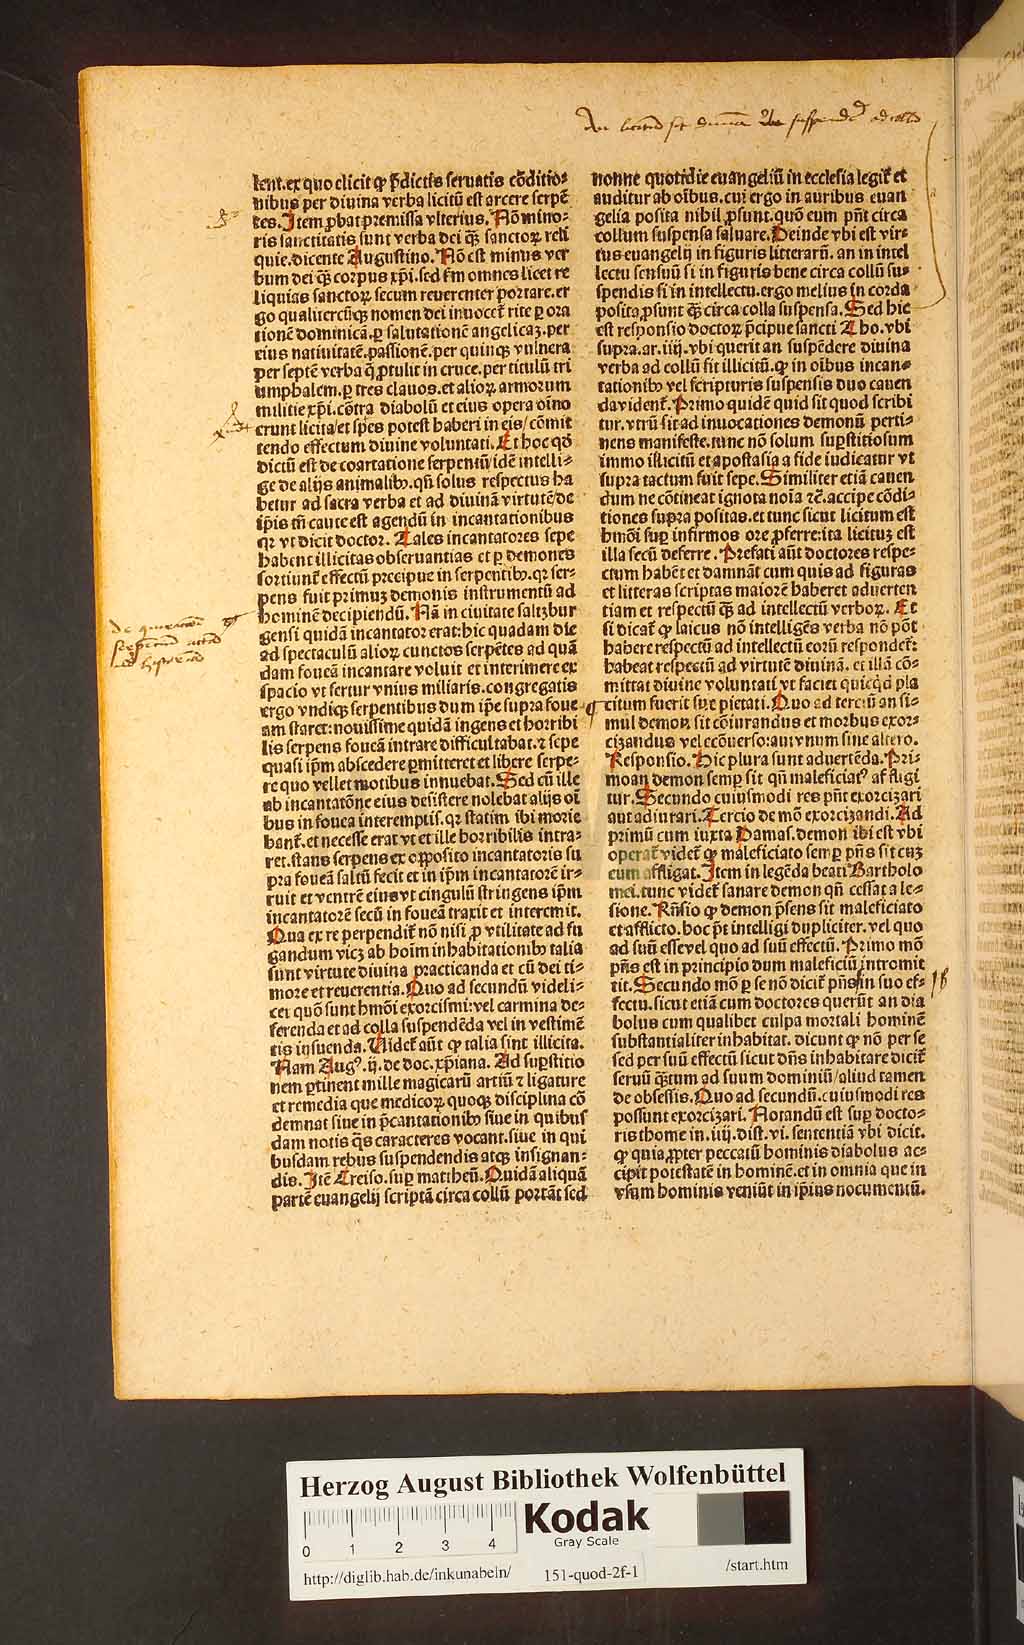 An licitum sit diuina v̄ba suspendēd ad collū
lent.ex quo elicit ꝙ p̄dictis seruatis cōditio⸗
nibus per diuina verba licitū est arcere serpē
tes.Item ꝓbat premissa vlterius. Nō mino⸗
ris sanctitatis sunt verba dei ꝗ̄ sanctoꝝ reli
quie.dicente Augustino. Nō est minus ver
bum dei ꝗ̄ corpus xp̄i.sed ſm omnes licet re
liquias sanctoꝝ secum reuerenter portare.er
go qualitercūqꝫ nomen dei inuocet̄ rite ꝑ ora
tionē dominicā.ꝑ salutationē angelicaꝫ.per
eius natiuitatē.passionē.per quinqꝫ vulnera
per septē verba q̄ ꝓtulit in cruce.per titulū tri
umphalem.ꝑ tres clauos.et alioꝝ armorum
militie xp̄i.cōtra diabolū et eius opera oīno
erunt licita/et spes potest haberi in eis/cōmit
tendo effectum diuine voluntati.Et hoc qd̄
dictū est de coartatione serpentū/idē intelli⸗
ge de alijs animalibꝫ.qn̄ solus respectus ha
betur ad sacra verba et ad diuinā virtutē/de
ip̄is tn̄ caute est agendū in incantationibus
qꝛ vt dicit doctor. Tales incantatores sepe
habent illicitas obseruantias et ꝑ demones
sortiunt̄ effectū precipue in serpentibꝫ.qꝛ ser⸗
pens fuit primuꝫ demonis instrumentū ad
hominē decipiendū. Nā in ciuitate saltzbur
gensi quidā incantator erat:hic quadam die
ad spectaculū alioꝝ cunctos serpētes ad quā
dam foueā incantare voluit et interimere ex
spacio vt fertur vnius miliaris.congregatis
ergo vndiqꝫ serpentibus dum ip̄e supra foue
am staret:nouissime quidā ingens et horribi
lis serpens foueā intrare difficultabat.⁊ sepe
quasi ip̄m abscedere ꝑmitteret et libere serpe⸗
re quo vellet motibus innuebat.Sed cū ille
ab incantatōne eius desistere nolebat alijs oī
bus in fouea interemptis.qꝛ statim ibi morie
bant̄.et necesse erat vt et ille horribilis intra⸗
ret.stans serpens ex opposito incantatoris su
pra foueā saltū fecit et in ip̄m incantatorē ir⸗
ruit et ventrē eius vt cingulū stringens ip̄m
incantatorē secū in foueā traxit et interemit.
Qua ex re perpendit̄ nō nisi ꝓ vtilitate ad fu
gandum vicꝫ ab hoīm inhabitationibꝫ talia
sunt virtute diuina practicanda et cū dei ti⸗
more et reuerentia.Quo ad secundū videli⸗
cet quō sunt hmōi exorcismi:vel carmina de⸗
ferenda et ad colla suspendēda vel in vestimē
tis insuenda.Videt̄ aūt ꝙ talia sint illicita.
Nam Augꝰ.ij.de doc.xp̄iana. Ad suꝑstitio
nem ꝑtinent mille magicarū artiū ⁊ ligature
et remedia que medicoꝝ quoqꝫ disciplina cō
demnat siue in p̄cantationibꝫ siue in quibus
dam notis q̄s caracteres vocant.siue in qui
busdam rebus suspendendis atqꝫ insignan⸗
dis.Itē Creiso.suꝑ matheū.Quidā aliquā
partē euangelij scriptā circa collū portāt sed
de quodam
serpentum
historia
nonne quotidie euangeliū in ecclesia legit̄ et
auditur ab oībus.cui ergo in auribus euan
gelia posita nihil ꝓsunt.quō eum pn̄t circa
collum suspensa saluare.Deinde vbi est vir⸗
tus euangelij in figuris litterarū. an in intel
lectu sensuū si in figuris bene circa collū su⸗
spendis si in intellectu.ergo melius in corda
posita ꝓsunt ꝗ̄ circa colla suspensa.Sed hic
est responsio doctoꝝ p̄cipue sancti Tho.vbi
supra.ar.iiij.vbi querit an suspēdere diuina
verba ad collū sit illicitū.ꝙ in oībus incan⸗
tationibꝫ vel scripturis suspensis duo cauen
da vident̄.Primo quidē quid sit quod scribi
tur.vtrū sit ad inuocationes demonū perti⸗
nens manifeste.tunc nō solum suꝑstitiosum
immo illicitū et apostasia a fide iudicatur vt
supra tactum fuit sepe.Similiter etiā cauen
dum ne cōtineat ignota noīa ⁊cē.accipe cōdi⸗
tiones supra positas.et tunc sicut licitum est
hmōi suꝑ infirmos ore ꝓferre:ita licituꝫ est
illa secū deferre. Prefati aūt doctores respe⸗
ctum habēt et damnāt cum quis ad figuras
et litteras scriptas maiorē haberet aduerten
tiam et respectū ꝗ̄ ad intellectū verboꝝ. Et
si dicat̄ ꝙ laicus nō intelligēs verba nō pōt
habere respectū ad intellectū eorū respondet̄:
habeat respectū ad virtutē diuinā. et illā cō⸗
mittat diuine voluntati vt faciet quicꝗ̄d pla
citum fuerit sue pietati.Quo ad terciū an si⸗
mul demon sit cōiurandus et morbus exor⸗
cizandus vel ecōuerso:aut vnum sine altero.
Responsio.Hic plura sunt aduertēda.Pri⸗
mo an demon semꝑ sit qn̄ maleficiatꝰ affligi
tur.Secundo cuiusmodi res pn̄t exorcizari
aut adiurari.Tercio de mō exorcizandi.Ad
primū cum iuxta Damas.demon ibi est vbi
operat̄ videt̄ ꝙ maleficiato semꝑ pn̄s sit cuꝫ
eum affligat.Item in legēda beati Bartholo
mei.tunc videt̄ sanare demon qn̄ cessat a le⸗
sione. Rn̄sio ꝙ demon p̄sens sit maleficiato
et afflicto.hoc p̄t intelligi dupliciter.vel quo
ad suū esse vel quo ad suū effectū. Primo mō
pn̄s est in principio dum maleficiū intromit
tit.Secundo mō ꝑ se nō dicit̄ pn̄s/in suo ef⸗
fectu.sicut etiā cum doctores querūt an dia
bolus cum qualibet culpa mortali hominē
substantialiter inhabitat. dicunt ꝙ nō per se
sed per suū effectū sicut dn̄s inhabitare dicit̄
seruū ꝗ̄tum ad suum dominiū/aliud tamen
de obsessis.Quo ad secundū.cuiusmodi res
possunt exorcizari. Notandū est suꝑ docto⸗
ris thome in.iiij.dist.vi.sententiā vbi dicit.
ꝙ quia ꝓpter peccatū hominis diabolus ac⸗
cipit potestatē in hominē.et in omnia que in
vsum hominis veniūt in ip̄ius nocumentū.
Herzog August Bibliothek Wolfenbüttel
0 1 2 3 4
Kodak
Gray Scale
http://diglib.hab.de/inkunabeln/ 151-quod-2f-1 /start.htm